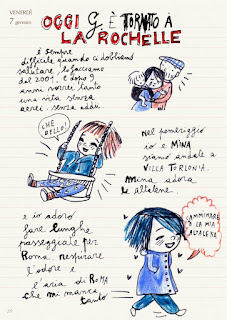 VENERDÌ
7 gennaio
OGGI G. È TORNATO A
LA ROCHELLE
è sempre
difficile quando ci dobbiamo
salutare, lo facciamo
dal 2001. e dopo 9
anni vorrei tanto
una vita senza
aerei senza addii.
CHE
BELLO!
Nel pomeriggio
io e MINA
siamo andate a
VILLA TORLONIA.
Mina adora
le altalene.
e io adoro
fare lunghe
passeggiate per
Roma, respirare
l'odore e
l'aria di ROMA
che mi manca
tanto
CAMMINARE
È LA MIA
ALTALENA